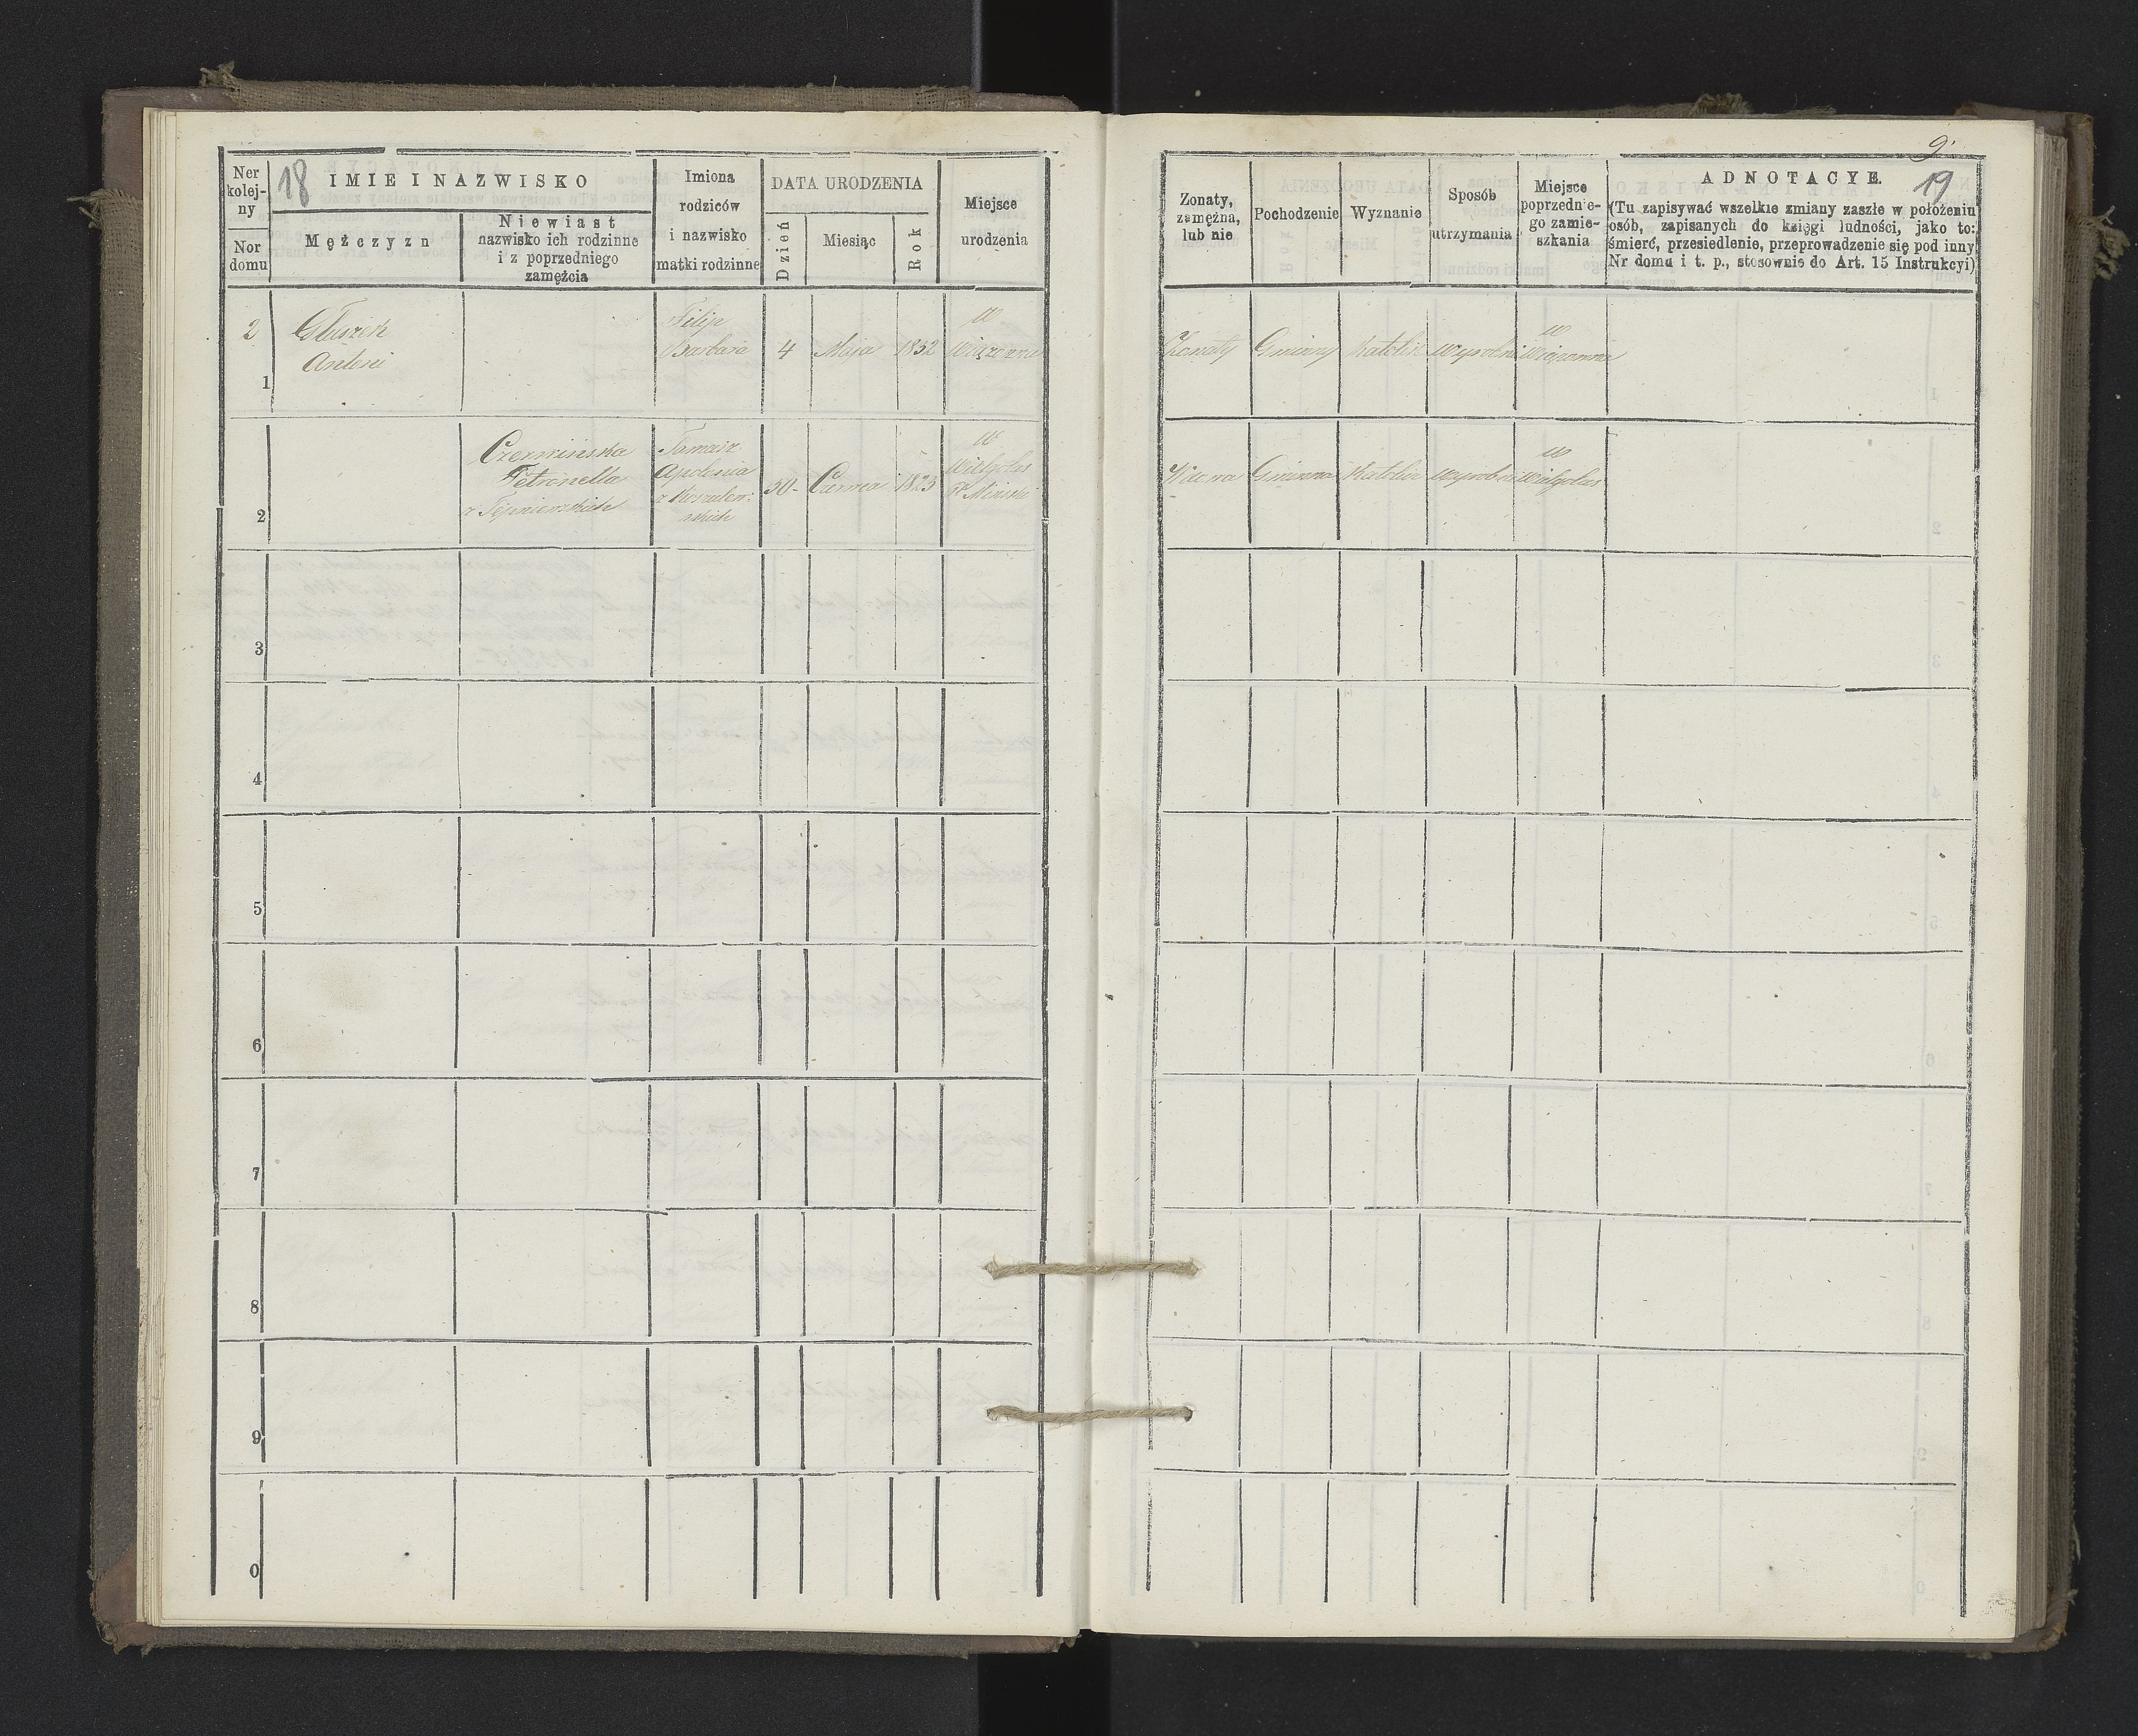 18
Ner kolej-ny
Nor domu
IMIE I NAZWISKO
Mężczyzn
Niewiast
nazwisko ich rodzinne
i z poprzedniego
zamężcia
Imiona
rodziców
i nazwisko
matki rodzinne
DATA URODZENIA
Dzień
Miesiąc
Rok
Miejsce
urodzenia
2
1
Głuszek
Antoni
Filip
Barbara
4
Maja
1852
w
Wiązowna
2
Czerwińska
Petronella
z
Tomasz
Apolonia
z Kowalew:
skich
30
Czerwca
1823
w
Wielgolas
P. Miński
3
4
5
6
7
8
9
0
9.
19
Zonaty,
zamężna,
lub nie
Pochodzenie
Wyznanie
Sposób
utrzymania
Miejsce
poprzednie-
go zamie-
szkania
ADNOTACYE.
(Tu zapisywać wszelkie zmiany zaszłe w położeniu
osób, zapisanych do księgi ludności, jako to:
śmierć, przesiedlenie, przeprowadzenie się pod inny
Nr domu i t. p., stosownie do Art. 15 Instrukcyi)
Żonaty
Gminny
Katolik
wyrobni
w
Wiązowna
Wdowa
Gminna
Katolic
wyrobni
w
Wielgolas